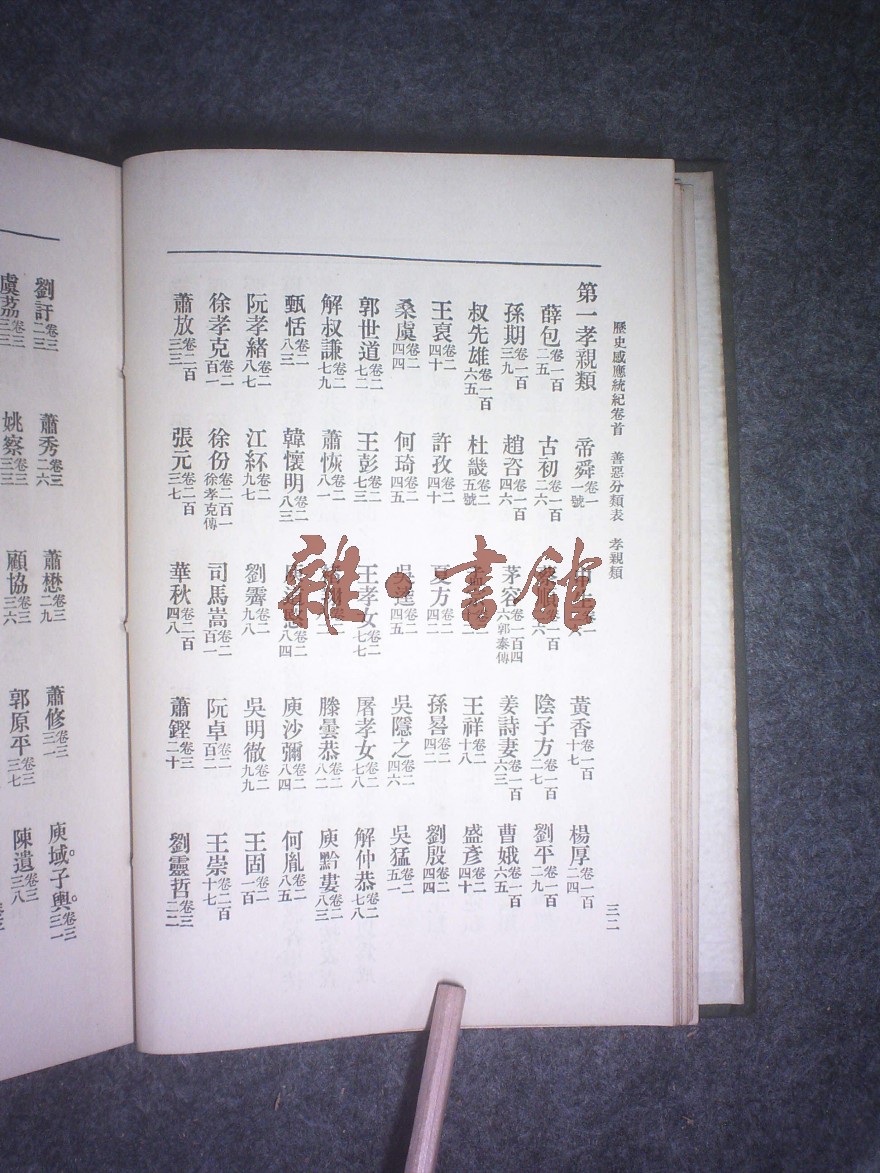 歷史感應統紀卷首 善惡分類表 孝親類 三二
第一孝親類 帝舜卷一一號 黃香卷一百十七 楊厚卷一百二四
薛包卷一百二五 古初卷一百二六 陰子方卷一百二七 劉平卷一百二九
孫期卷一百三九 趙咨卷一百四六 茅容卷一百四六郭泰傳 姜詩妻卷一百六三 曹娥卷一百六五
叔先雄卷一百六五 杜畿卷二五號 王祥卷二十八 盛彥卷二四十
王裒卷二四十 許孜卷二四十 夏方卷二四二 孫晷卷二四二 劉殷卷二四四
桑虞卷二四四 何琦卷二四五 吳逵卷二四五 吳隱之卷二四六 吳猛卷二五一
郭世道卷二七二 王彭卷二七三 王孝女卷二七七 屠孝女卷二七八 解仲恭卷二七八
解叔謙卷二七九 蕭恢卷二八一 滕曇恭卷二八二 庾黔婁卷二八三
甄恬卷二八三 韓懷明卷二八三 庾沙彌卷二八四 何胤卷二八五
阮孝緒卷二八七 江紑卷二九七 劉霽卷二九八 吳明徹卷二九九 王固卷二一百
徐孝克卷二百一 徐份卷二百一徐孝克傳 司馬嵩卷二百一 阮卓卷二百二 王崇卷二百十七
蕭放卷二百三三 張元卷二百三七 華秋卷二百四八 蕭鏗卷三二十 劉靈哲卷三二二
劉訏卷三二三 蕭秀卷三二六 蕭懋卷三二九 蕭修卷三三一 庾域。子輿。卷三三一
虞荔卷三三三 姚察卷三三三 顧協卷三三六 郭原平卷三三七 陳遺卷三三八
雜·書館